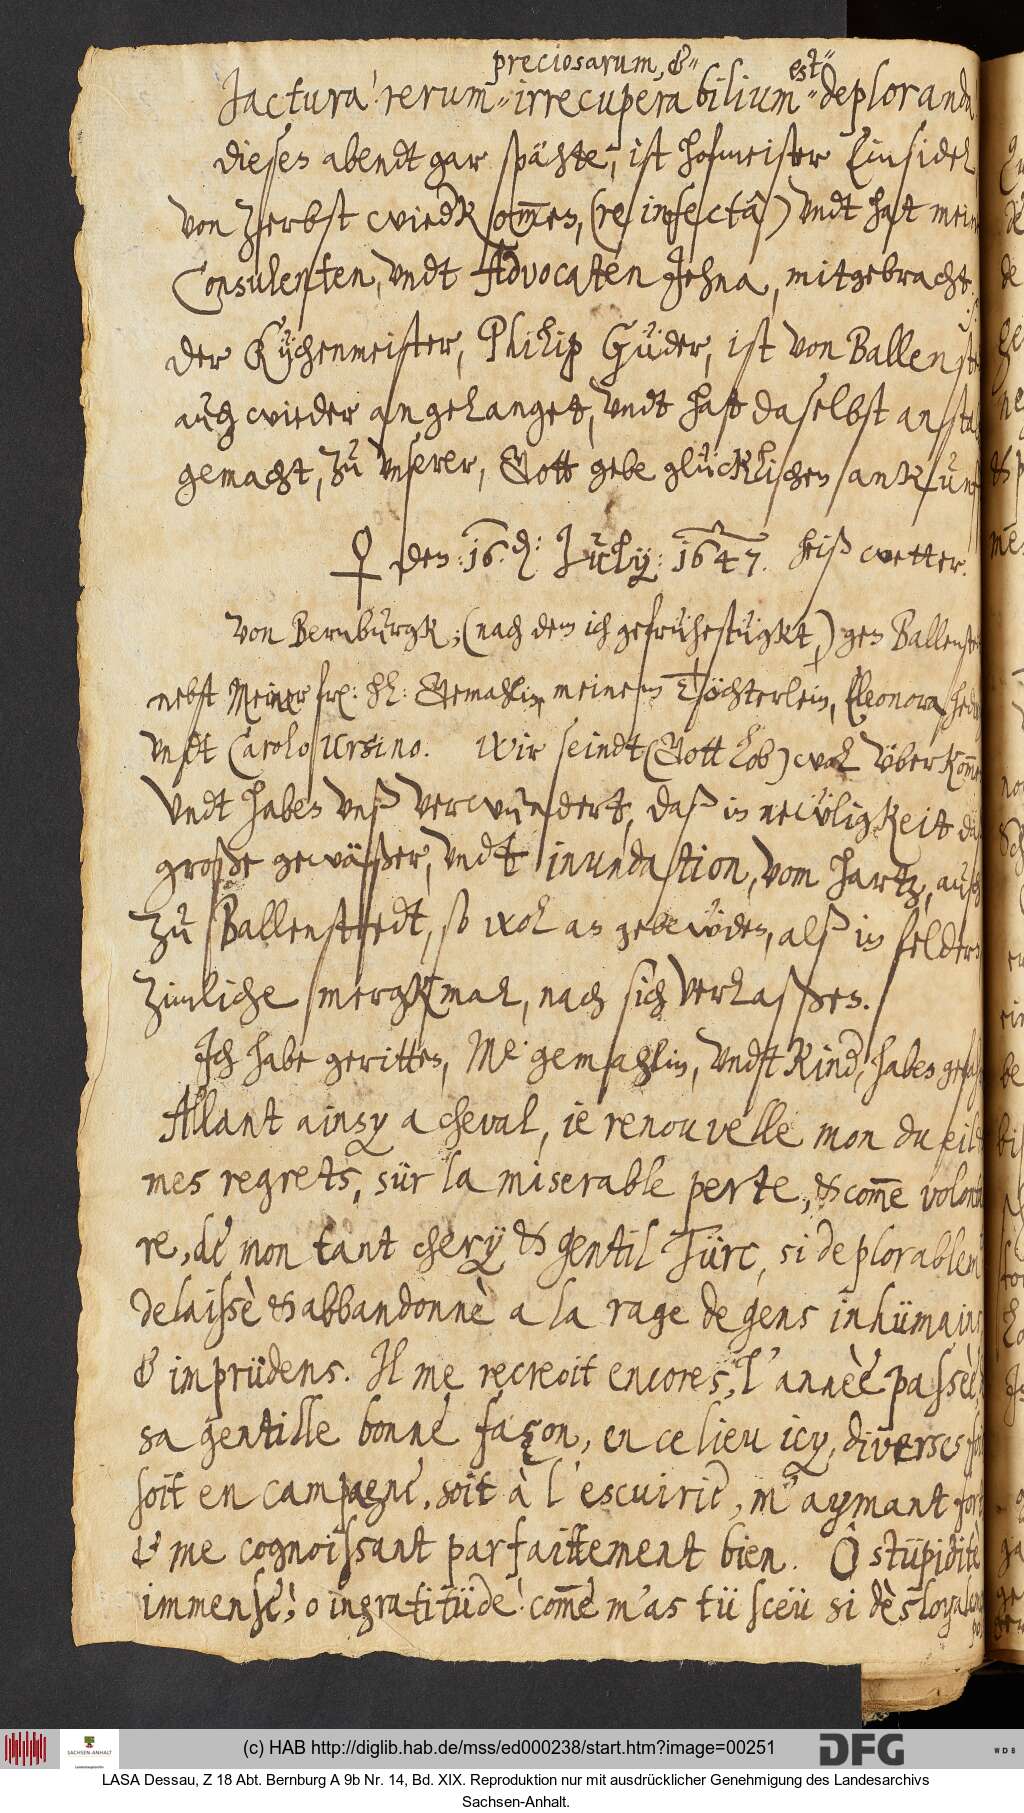 preciosarum, & est
Jactura rerum irrecuperabilium deploranda
dieses abendt gar spähte, ist hofmeister Einsidel
von Zerbst wiedk ommen, (re infectâ) vndt hat mein
Consulenten, vndt Advocaten Jehna, mitgebracht.
der Küchenmeister, Philip Güder, ist von Ballenste
auch wieder angelanget, vndt hat daselbst anstal
gemacht, zu vnserer, Gott gebe glücklichen ankunf
♀ den: 16.d: July: 1647. heiß wetter.
Von Bernburgk, (nach dem ich gefruhestügkt,) gen Ballenste
nebst Meiner frl: hl: Gemahlin, meinem Töchterlein, Eleonora hedw
vndt Carolo Ursino. Wir seindt (Gott lob) wol überkom̅e
vndt haben vnß verwundert, daß in newligkeit die
große gewäßer, vndt inundation, vom hartz, auch
zu Ballenstedt, so wol an gebewden, alß in feldern
zimliche mergkmal, nach sich verlaßen.
Ich habe geritten, Me gemahlin, vndt Kind, haben gefah
Allant ainsy a cheval, ie renouvelle mon dueil,
mes regrets, sür la miserable perte, & com̅e volontai
re, de mon tant chery & gentil Türc, si deplorablem
delaissè & abbandonnè a la rage de gens inhümains,
& imprüdens. Il me recreoit encores, l'annèe passèe,
sa gentille bonne façon, en ce lieu icy, diverses foi
soit en campagne, soit à l'escuirie, m'aymant fort
& me cognoissant parfaittement bien. Ô stüpiditè
immense, o ingratitüde! com̅e m'as tü sceü si dèsloyalem
(c) HAB http://diglib.hab.de/mss/ed000238/start.htm?image=00251
SACHSEN-ANHALT
DFG
WDB
LASA Dessau, Z 18 Abt. Bernburg A 9b Nr. 14, Bd. XIX. Reproduktion nur mit ausdrücklicher Genehmigung des Landesarchivs
Sachsen-Anhalt.